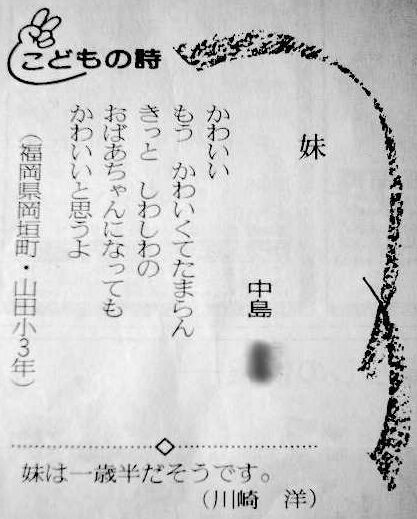 こどもの詩
妹
中島
かわいい
もう　かわいくてたまらん
きっと　しわしわの
おばあちゃんになっても
かわいいと思うよ
（福岡県岡垣町・山田小3年）
妹は一歳半だそうです。
（川崎　洋）